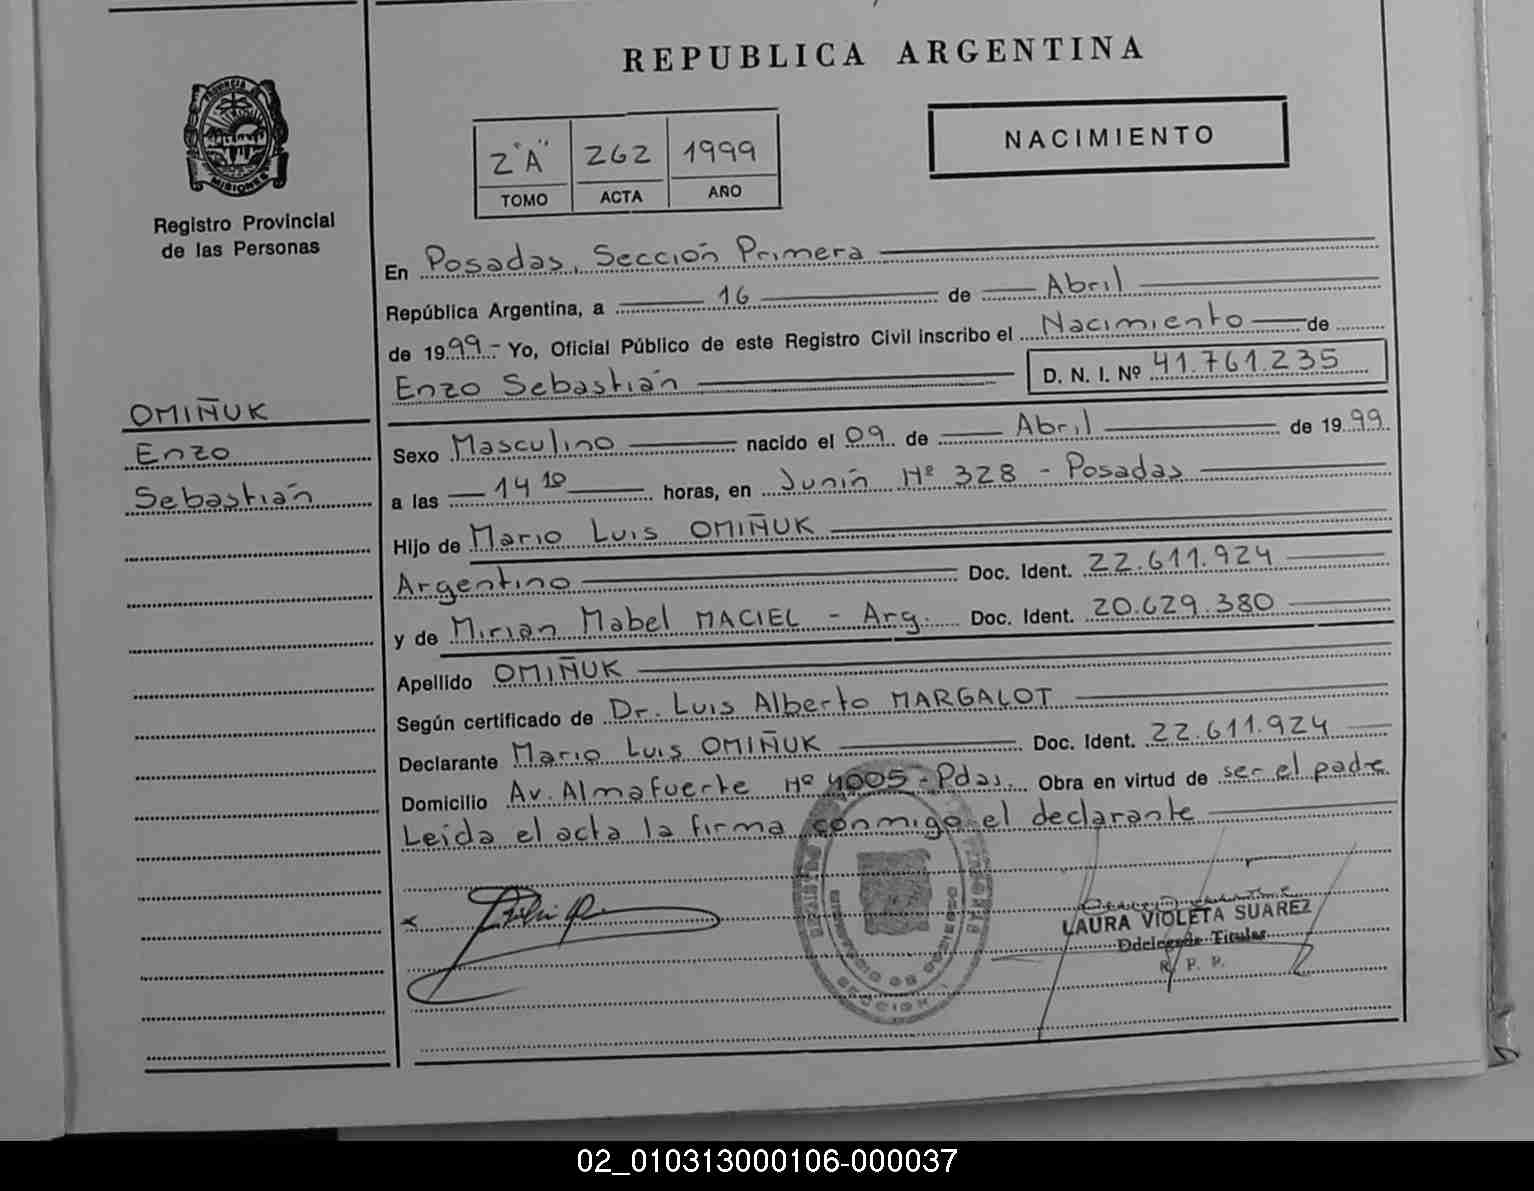 REPUBLICA ARGENTINA
PROVINCIA DE
MISIONES
Registro Provincial
de las Personas
2°"A" 262 1999
TOMO ACTA AÑO
NACIMIENTO
En Posadas, Sección Primera
República Argentina, a 16 de Abril
de 1999.- Yo, Oficial Público de este Registro Civil inscribo el Nacimiento de
Enzo Sebastián D. N. I. Nº 41.761.235
OMIÑUK
Enzo
Sebastián
Sexo Masculino nacido el 09 de Abril de 1999
a las 14 10 horas, en Junín Nº 328 - Posadas
Hijo de Mario Luis OMIÑUK
Argentino Doc. Ident. 22.611.924
y de Mirian Mabel MACIEL - Arg. Doc. Ident. 20.629.380
Apellido OMIÑUK
Según certificado de Dr. Luis Alberto MARGALOT
Declarante Mario Luis OMIÑUK Doc. Ident. 22.611.924
Domicilio Av. Almafuerte Nº 4005 - Pdas. Obra en virtud de ser el padre
Leída el acta la firma conmigo el declarante
LAURA VIOLETA SUAREZ
Ddelegada Titular
R. P. P.
02_010313000106-000037